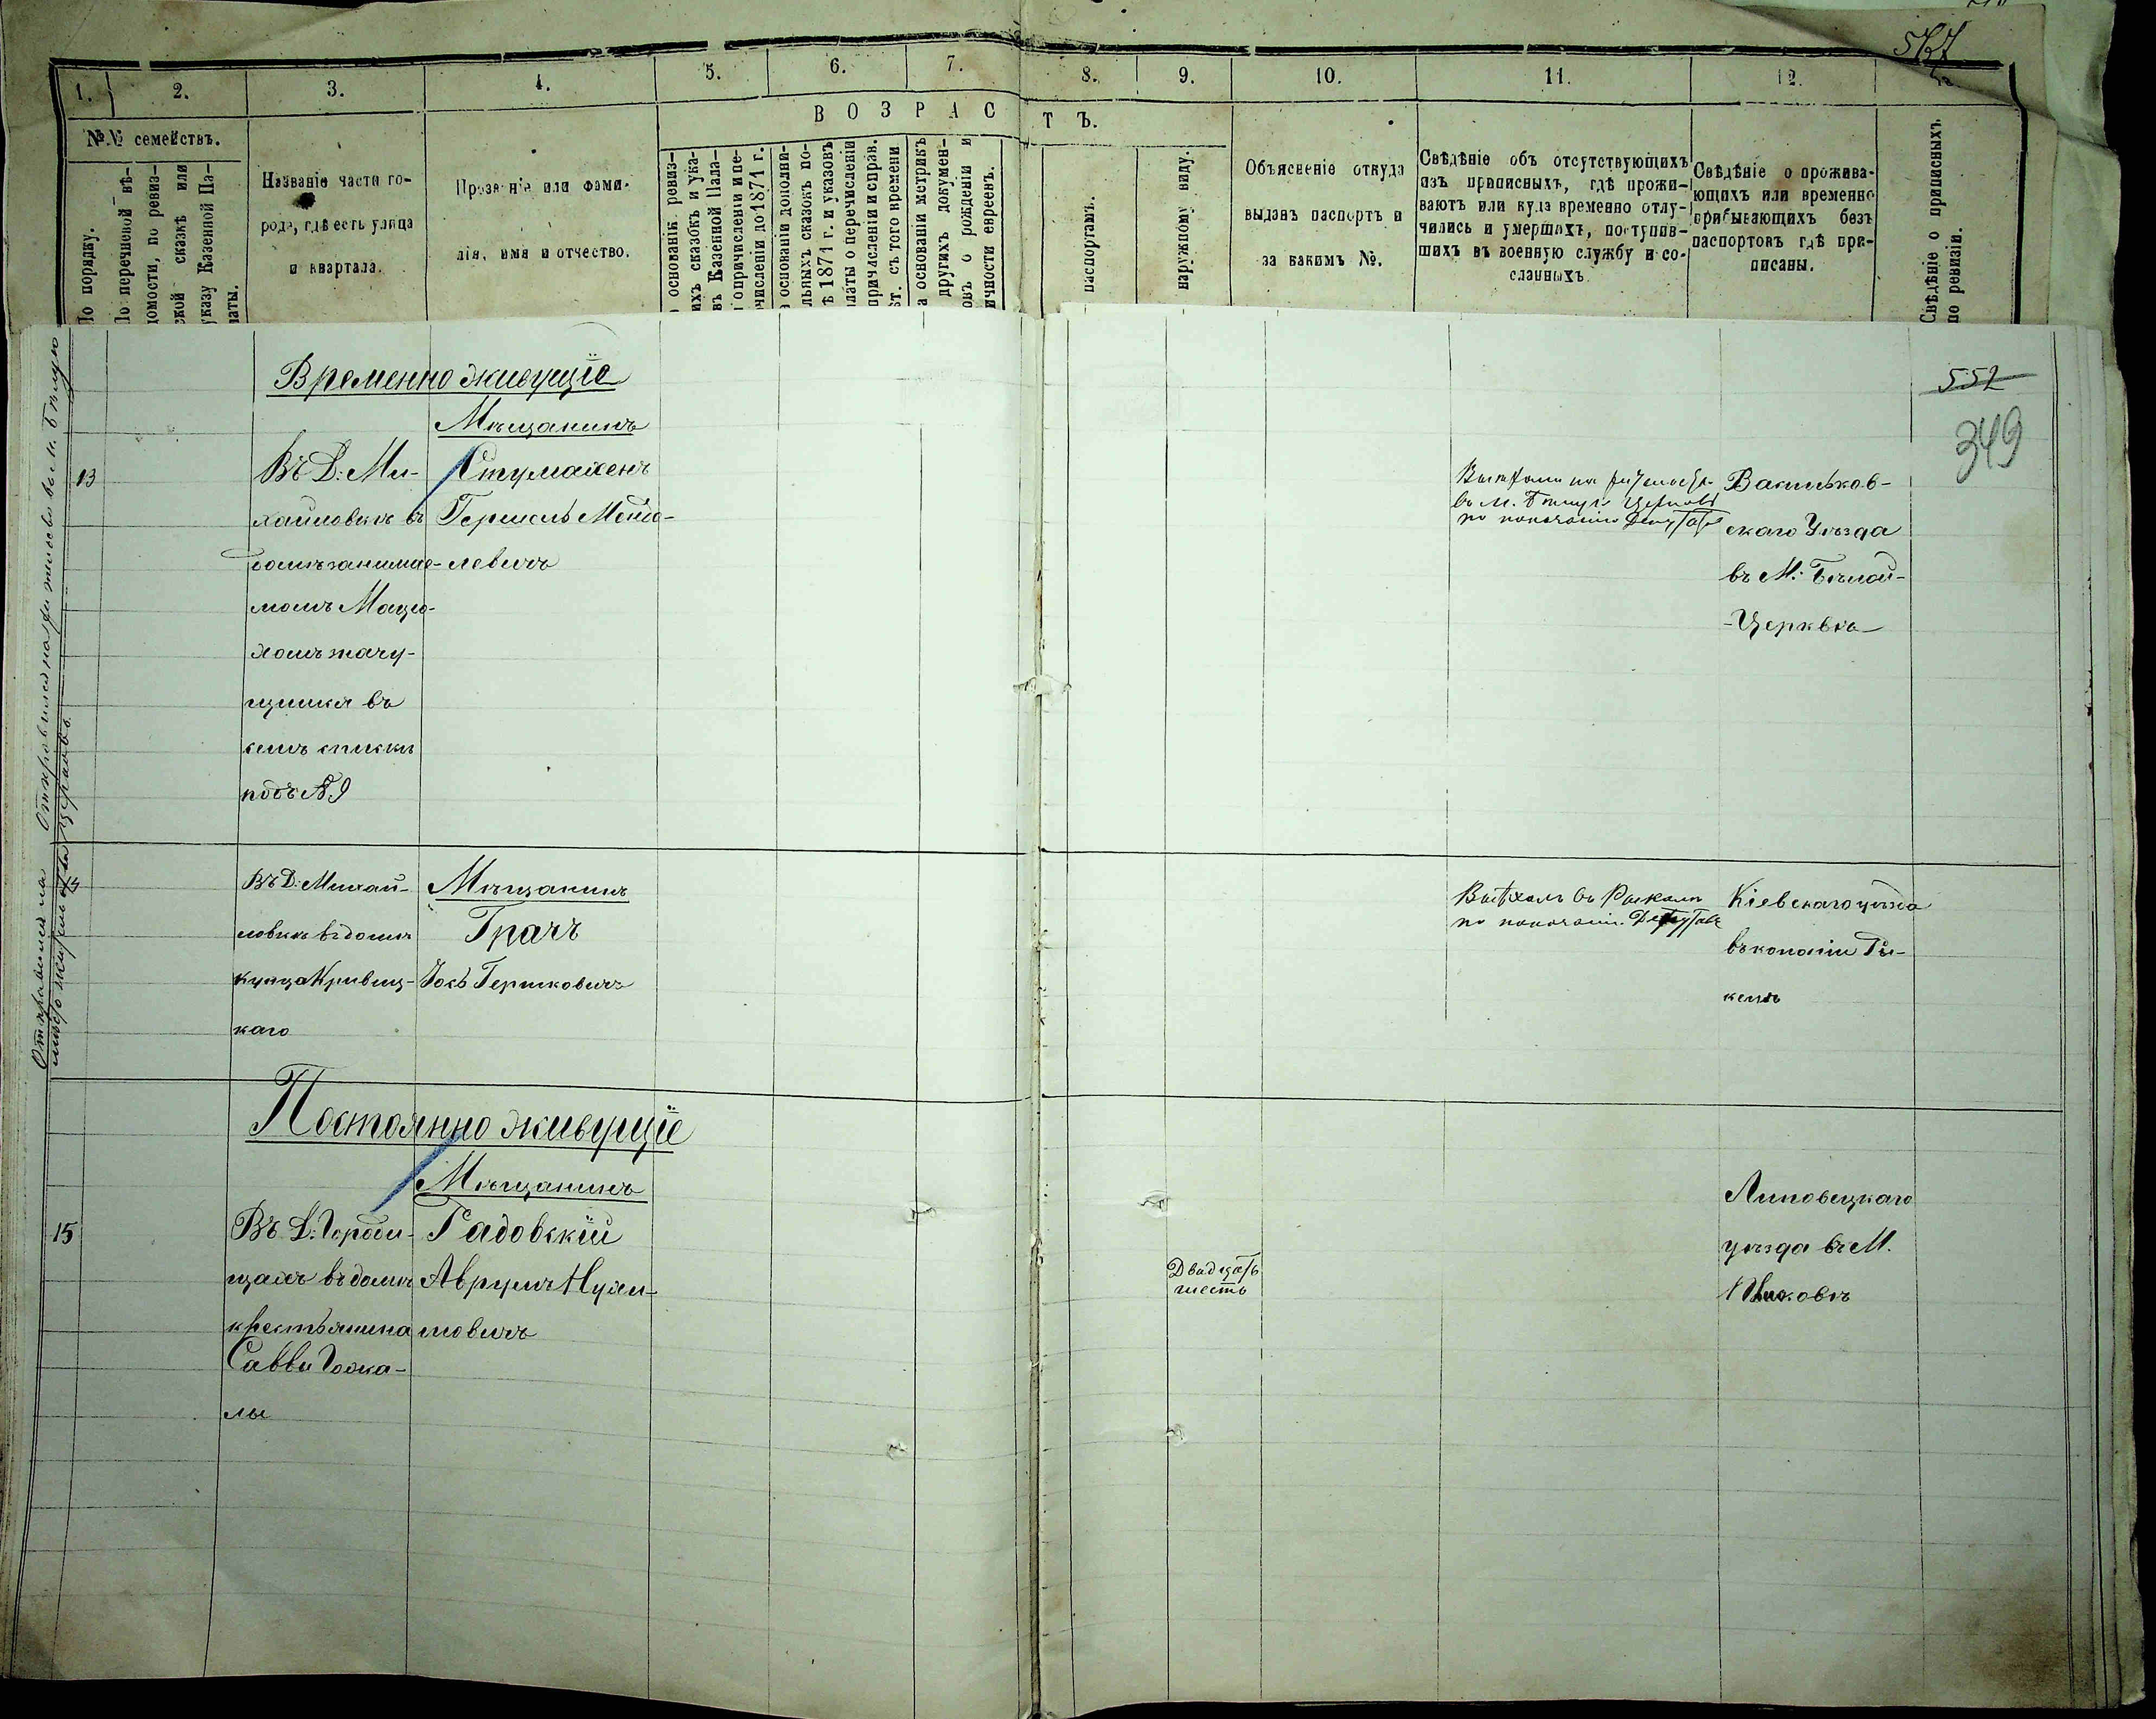 577
1. 2. 3. 4. 5. 6. 7. 8. 9. 10. 11. 12.
В О З Р А С Т Ъ.
№№ семействъ.
По порядку.
По перечневой вѣ-
домости, по ревиз-
ской сказкѣ или
указу Казенной Па-
латы.
Названіе части го-
рода, гдѣ есть улица
и квартала.
Прозваніе или фами-
лія, имя и отчество.
о основаніи ревиз-
ихъ сказокъ и ука-
въ Казенной Пала-
о причисленіи и пе-
численіи до 1871 г.
о основаніи дополни-
льныхъ сказокъ по-
ѣ 1871 г. и указовъ
латы о перечисленіи
причисленіи и справ.
ѣт. съ того времени
а основаніи метрикъ
другихъ докумен-
овъ о рожденіи и
ичности евреевъ.
паспортамъ.
наружному виду.
Объясненіе откуда
выданъ паспортъ и
за какимъ №.
Свѣдѣніе объ отсутствующихъ
изъ приписныхъ, гдѣ прожи-
ваютъ или куда временно отлу-
чились и умершихъ, поступив-
шихъ въ военную службу и со-
сланныхъ
Свѣдѣніе о прожива-
ющихъ или временно
прибывающихъ безъ
паспортовъ гдѣ при-
писаны.
Свѣдѣніе о приписныхъ
по ревизіи.
552
349
Временно живущіе
Мѣщанинъ
13
Въ Д: Ми-
хайловкѣ въ
домѣ занимае-
момъ Мацю-
хомъ
въ
семъ списки
подъ № 9
Стумахенъ
Гершель Менде-
левичъ
въ М. Бѣлую Церковь
по показанію Депутата
Васильков-
скаго Уѣзда
въ М: Бѣлой-
-Церквѣ
Въ Д: Михай-
ловкѣ въ домѣ
купца Кривиц-
каго
Мѣщанинъ
Грачъ
Іось Гершковичъ
Выѣхалъ въ
по показанію Депутата
Кіевскаго уѣзда
Постоянно живущіе
Мѣщанинъ
15
Въ Д: Городи-
щахъ въ домѣ
крестьянина
Саввы Гожа-
лы
Гадовскій
Аврумъ Нухи-
мовичъ
Двадцать
шесть
Липовецкаго
уѣзда въ М.